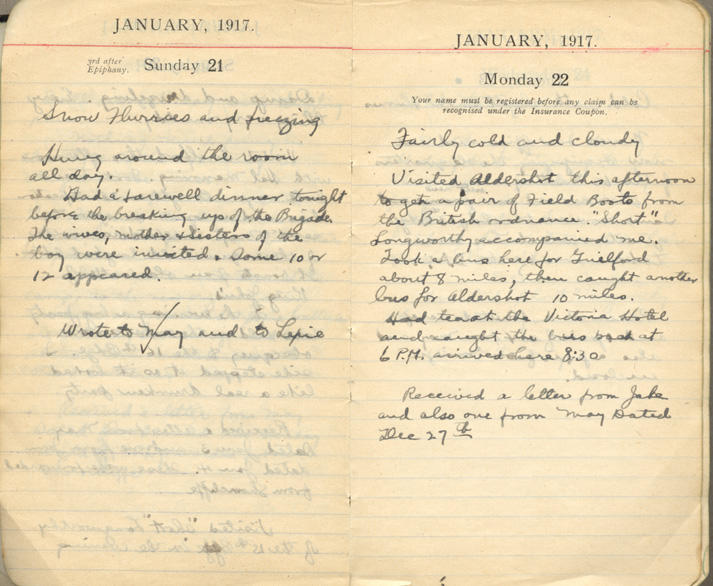 JANUARY, 1917.
3rd after
Epiphany.
Sunday 21
Snow Flurries and freezing
Hung around the room
all day.
Had a farewell dinner tonight
before the breaking up of the Brigade.
The wives, mother & sisters of the
boy were invited. Some 10 or
12 appeared.
Wrote to May and to
JANUARY, 1917.
Monday 22
Your name must be registered before any claim can be
recognised under the Insurance Coupon.
Fairly cold and cloudy
Visited Aldershot this afternoon
to get a pair of Field Boots from
the British ordnance. "Short"
Longworthy accompanied me.
Took a bus here for Guilford
about 8 miles, then caught another
bus for Aldershot 10 miles.
Had tea at the Victoria Hotel
and caught the bus back at
6 P.M. arrived here 8:30
Received a letter from Jake
and also one from May Dated
Dec 27th